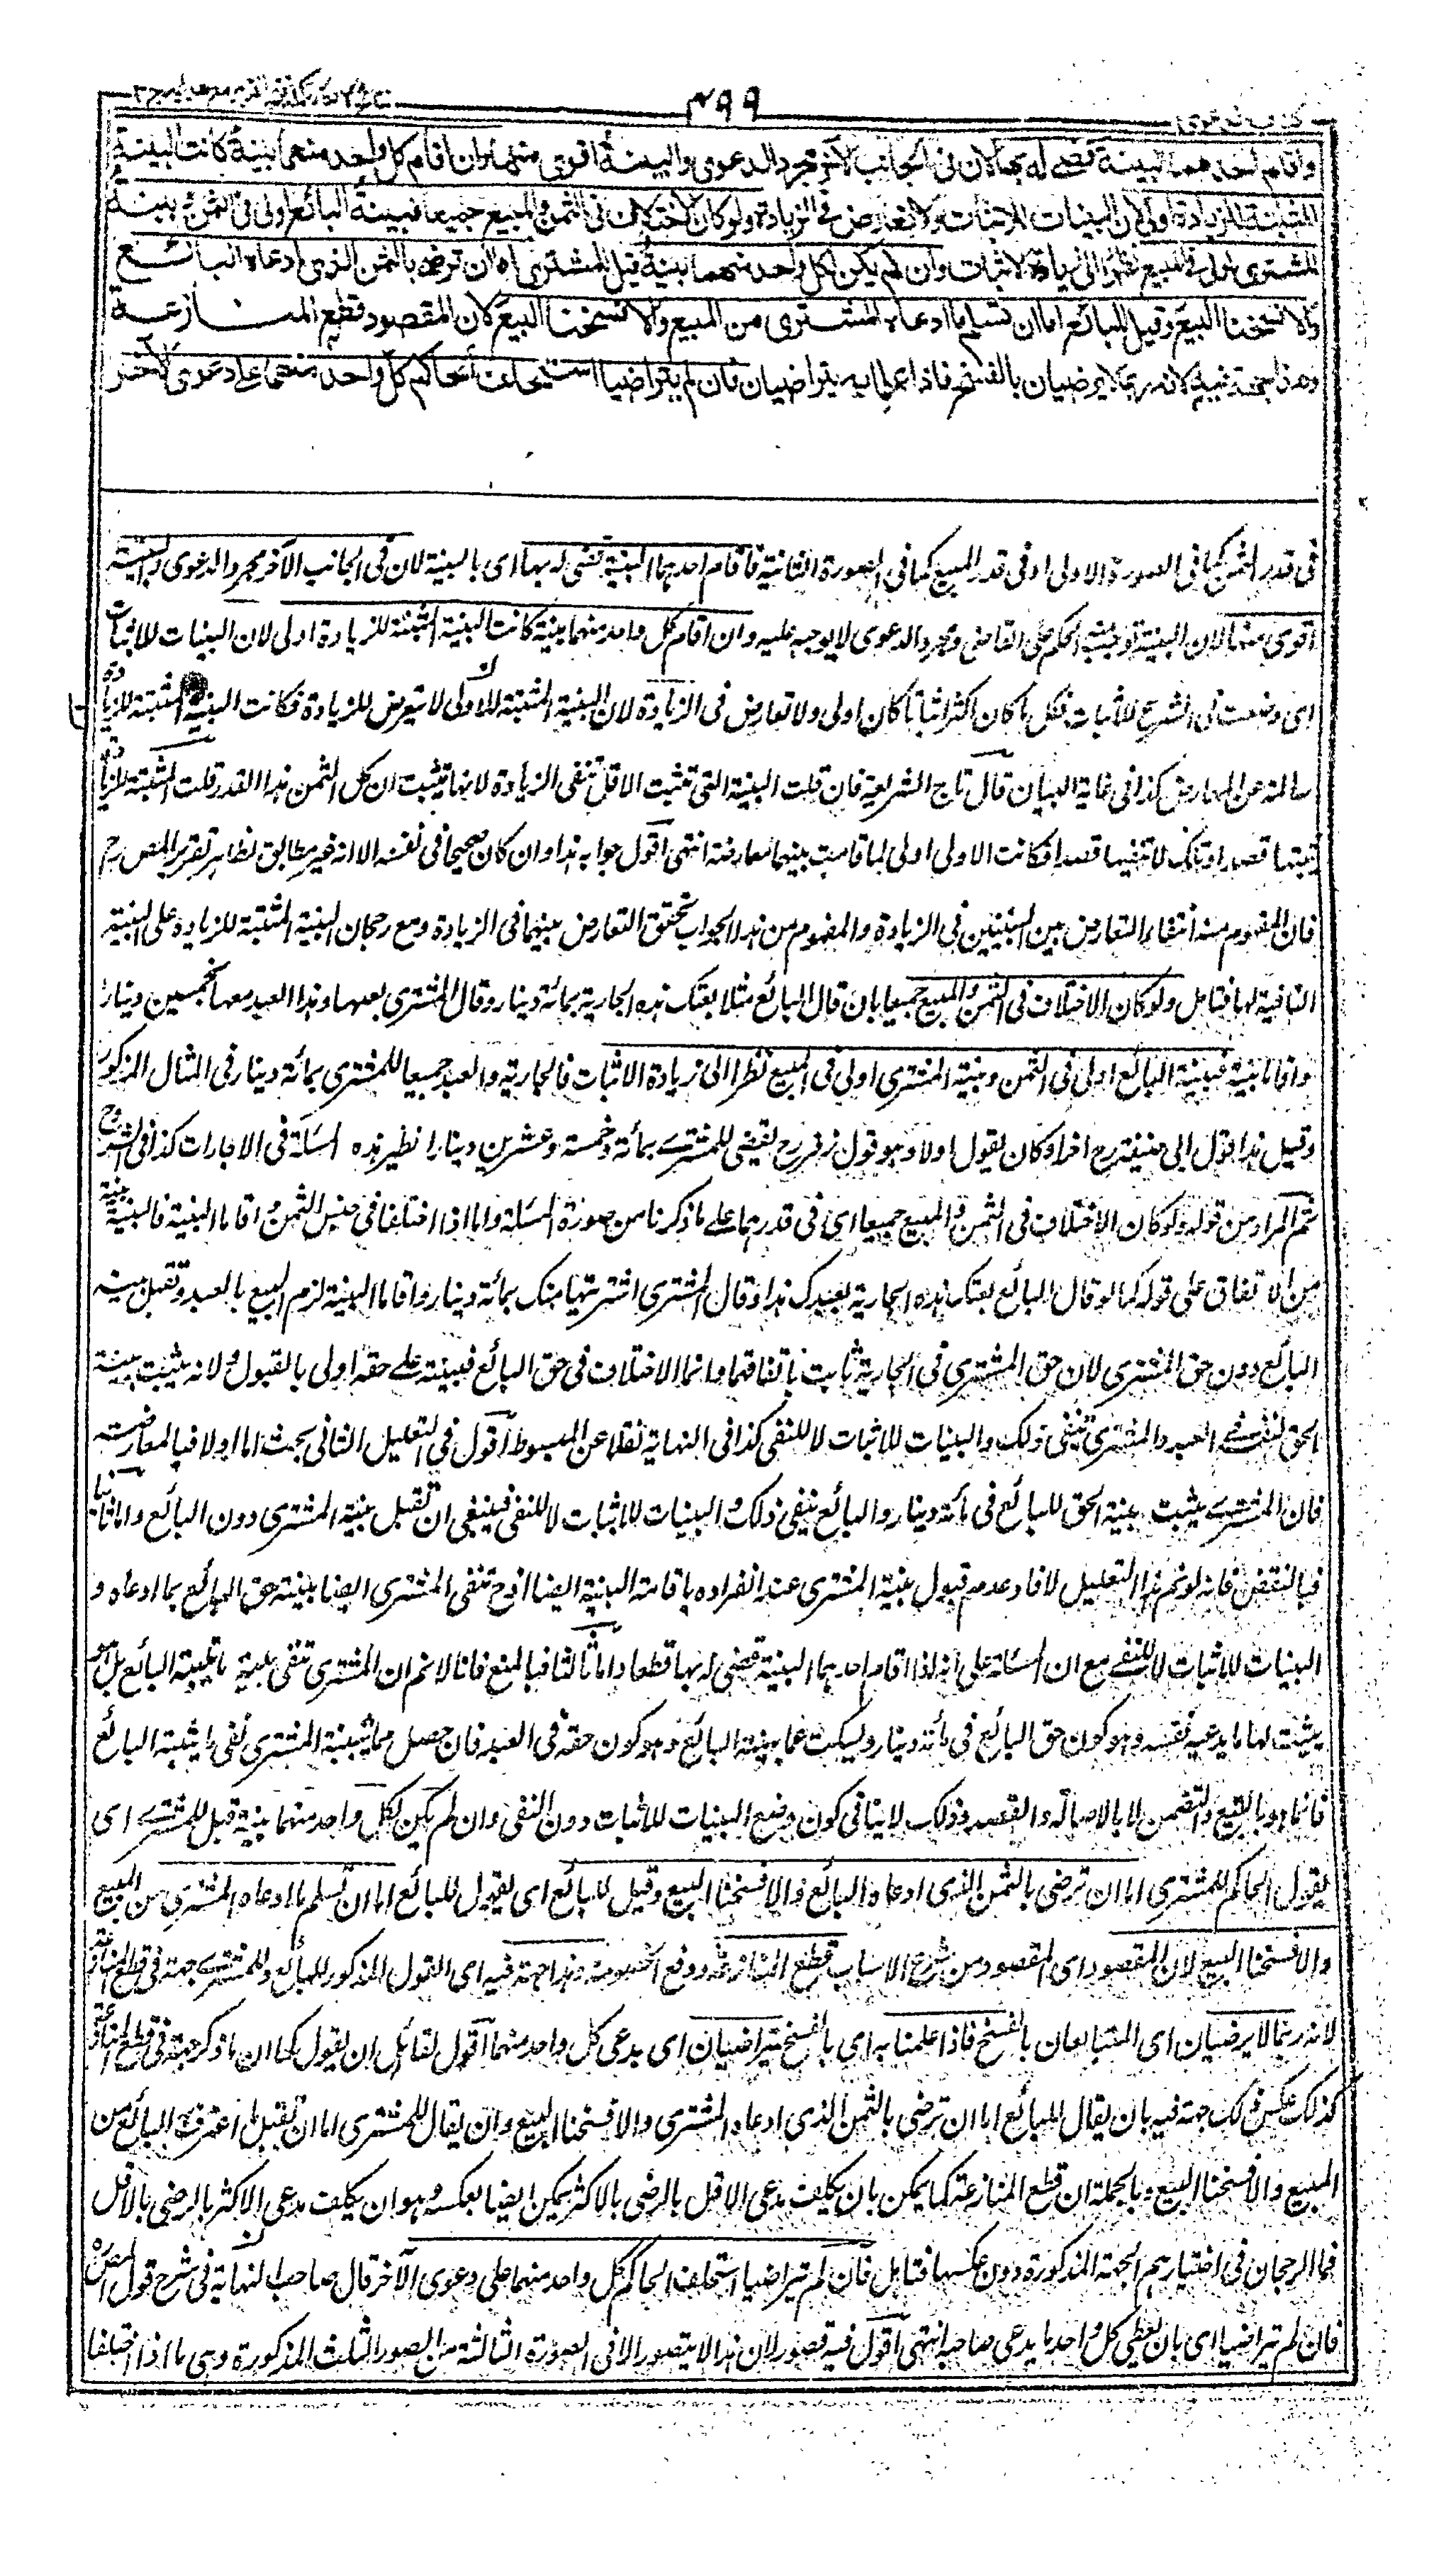 كتاب الدعوى
٤٩٩
واقام احدهما البينة قضى له بها لان فى الجانب الآخر مجرد الدعوى والبينة اقوى منها وان اقام كل واحد منهما بينة كانت البينة
المثبتة للزيادة اولى لان البينات للاثبات ولا تعارض فى الزيادة ولو كان الاختلاف فى الثمن والمبيع جميعا فبينة البائع اولى فى الثمن وبينة
المشترى اولى فى المبيع نظرا الى زيادة الاثبات وان لم يكن لكل واحد منهما بينة قيل للمشترى اما ان ترضى بالثمن الذى ادعاه البائع
والا فسخنا البيع وقيل للبائع اما ان تسلم ما ادعاه المشترى من المبيع والا فسخنا البيع لان المقصود قطع المنازعة
وهذا جهة فيه لانه ربما لا يرضيان بالفسخ فاذا علما به يتراضيان فان لم يتراضيا استحلف الحاكم كل واحد منهما على دعوى الآخر
فى قدر الثمن كما فى الصورة الاولى او فى قدر المبيع كما فى الصورة الثانية فاقام احدهما البينة قضى له بها اى بالبينة لان فى الجانب الآخر مجرد الدعوى والبينة
اقوى منها لان البينة توجب الحكم على القاضى ومجرد الدعوى لا يوجبه عليه وان اقام كل واحد منهما بينة كانت البينة المثبتة للزيادة اولى لان البينات للاثبات
اى وضعت فى الشرع للاثبات فكل ما كان اكثر اثباتا كان اولى ولا تعارض فى الزيادة لان البينة المثبتة للاولى لا تتعرض للزيادة فكانت البينة المثبتة للزيادة
سالمة عن المعارض كذا فى غاية البيان قال تاج الشريعة فان قلت البينة التى تثبت الاقل تنفى الزيادة لانها تثبت ان كل الثمن هذا القدر قلت المثبتة للزيادة
تثبتها قصدا وتلك لا تنفيها قصدا فكانت الاولى اولى لما قامت بينهما معارضة انتهى اقول جوابه هذا وان كان صحيحا فى نفسه الا انه غير مطابق لظاهر تقرير المص رح
فان المفهوم منه انتفاء التعارض بين البينتين فى الزيادة والمفهوم من هذا الجواب تحقق التعارض بينهما فى الزيادة ومع رجحان البينة المثبتة للزيادة على البينة
النافية لها فتامل ولو كان الاختلاف فى الثمن والمبيع جميعا بان قال البائع مثلا بعتك هذه الجارية بمائة دينار وقال المشترى بعتنيها وهذا العبد معها بخمسين دينارا
واقاما بينة فبينة البائع اولى فى الثمن وبينة المشترى اولى فى المبيع نظرا الى زيادة الاثبات فالجارية والعبد جميعا للمشترى بمائة دينار فى المثال المذكور
وقيل هذا قول ابى حنيفة رح اخرا وكان يقول اولا وهو قول زفر رح يقضى للمشترى بمائة وخمسة وعشرين دينارا نظير هذه المسئلة فى الاجارات كذا فى الشروح
ثم المراد من قوله ولو كان الاختلاف فى الثمن والمبيع جميعا اى فى قدرهما على ما ذكرنا من صورة المسئلة واما اذا اختلفا فى جنس الثمن واقاما البينة فالبينة بينة
من الاتفاق على قوله كما لو قال البائع بعتك هذه الجارية بعبدك هذا وقال المشترى اشتريتها منك بمائة دينار واقاما البينة لزم البيع بالعبد وتقبل بينة
البائع دون حق المشترى لان حق المشترى فى الجارية ثابت باتفاقهما وانما الاختلاف فى حق البائع فبينته على حقه اولى بالقبول ولانه يثبت ببينة
الحق لنفسه فى العبد والمشترى ينفى ذلك والبينات للاثبات لا للنفى كذا فى النهاية نقلا عن المبسوط اقول فى التعليل الثانى بحث اما اولا فبالمعارضة
فان المشترى يثبت ببينة الحق للبائع فى مائة دينار والبائع ينفى ذلك والبينات للاثبات لا للنفى فينبغى ان تقبل بينة المشترى دون البائع واما ثانيا
فبالنقض فانه لو تم هذا التعليل لافاد عدم قبول بينة المشترى عند انفراده باقامة البينة ايضا اذ ح تنفى المشترى ايضا ببينته حق البائع بما ادعاه و
البينات للاثبات لا للنفى مع ان المسئلة على انه اذا اقام احدهما البينة قضى له بها قطعا واما ثالثا فبالمنع فانا لا نم ان المشترى تنفى بينته ما تثبته البائع بل هو
يثبت لها ما يدعيه نفسه وهو كون حق البائع فى مائة دينار ويسكت عما بينه البائع وهو كون حقه فى العبد فان حصل مما يثبته المشترى نفى ما يثبته البائع
فانما هو بالتبع والتضمن لا بالاصالة والقصد وذلك لا ينافى كون وضع البينات للاثبات دون النفى وان لم يكن لكل واحد منهما بينة قيل للمشترى اى
يقول الحاكم للمشترى اما ان ترضى بالثمن الذى ادعاه البائع والا فسخنا البيع وقيل للبائع اى يقول للبائع اما ان تسلم ما ادعاه المشترى من المبيع
والا فسخنا البيع لان المقصود اى المقصود من شرع الاسباب قطع المنازعة ودفع الخصومة وهذا جهة فيه اى القول المذكور للبائع وللمشترى جهة فى قطع المنازعة
لانه ربما لا يرضيان اى المتبايعان بالفسخ فاذا علمنا به اى بالفسخ يتراضيان اى بدعى كل واحد منهما اقول لقائل ان يقول كما ان ما ذكر جهة فى قطع المنازعة
كذلك عكس ذلك جهة فيه بان يقال للبائع اما ان ترضى بالثمن الذى ادعاه المشترى والا فسخنا البيع وان يقال للمشترى اما ان تقبل ما اعترف به البائع من
المبيع والا فسخنا البيع وبالجملة ان قطع المنازعة كما يمكن بان يكلف مدعى الاقل بالرضى بالاكثر يمكن ايضا بعكسه وهو ان يكلف مدعى الاكثر بالرضى بالاقل
فما الرجحان فى اختيارهم الجهة المذكورة دون عكسها فتامل فان لم يتراضيا استحلف الحاكم كل واحد منهما على دعوى الآخر قال صاحب النهاية فى شرح قول المص
فان لم يتراضيا اى بان يعطى كل واحد ما يدعى صاحبه انتهى اقول فيه قصور لان هذا لا يتصور الا فى الصورة الثالثة من الصور الثلث المذكورة وهى ما اذا اختلفا